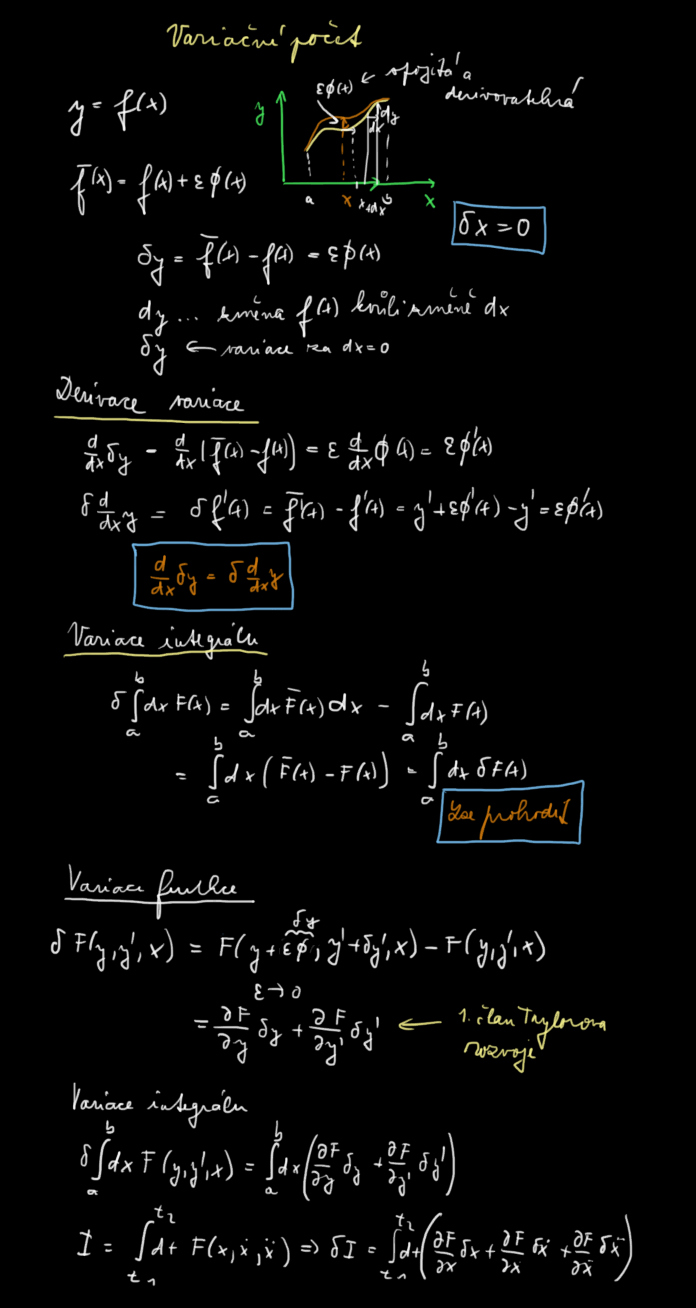 Variační počet
y = f(x)
εϕ(x) ← spojitá a
derivovatelná
y
dy
dx
f̄(x) = f(x) + εϕ(x)
a x x+dx b x
δx = 0
δy = f̄(x) - f(x) = εϕ(x)
dy ... změna f(x) kvůli změně dx
δy ← variace za dx=0
Derivace variace
d/dx δy = d/dx (f̄(x) - f(x)) = ε d/dx ϕ(x) = εϕ'(x)
δ d/dx y = δf'(x) = f̄'(x) - f'(x) = y' + εϕ'(x) - y' = εϕ'(x)
d/dx δy = δ d/dx y
Variace integrálu
δ∫_a^b dx F(x) = ∫_a^b dx F̄(x) dx - ∫_a^b dx F(x)
= ∫_a^b dx (F̄(x) - F(x)) = ∫_a^b dx δF(x)
Lze prohodit
Variace funkce
δy
δF(y,y',x) = F(y+εϕ, y'+δy', x) - F(y,y',x)
ε→0
= ∂F/∂y δy + ∂F/∂y' δy' ← 1. člen Taylorova
rozvoje
Variace integrálu
δ∫_a^b dx F(y,y',x) = ∫_a^b dx (∂F/∂y δy + ∂F/∂y' δy')
I = ∫_t₁^t₂ dt F(x,ẋ,ẍ) ⇒ δI = ∫_t₁^t₂ dt (∂F/∂x δx + ∂F/∂ẋ δẋ + ∂F/∂ẍ δẍ)